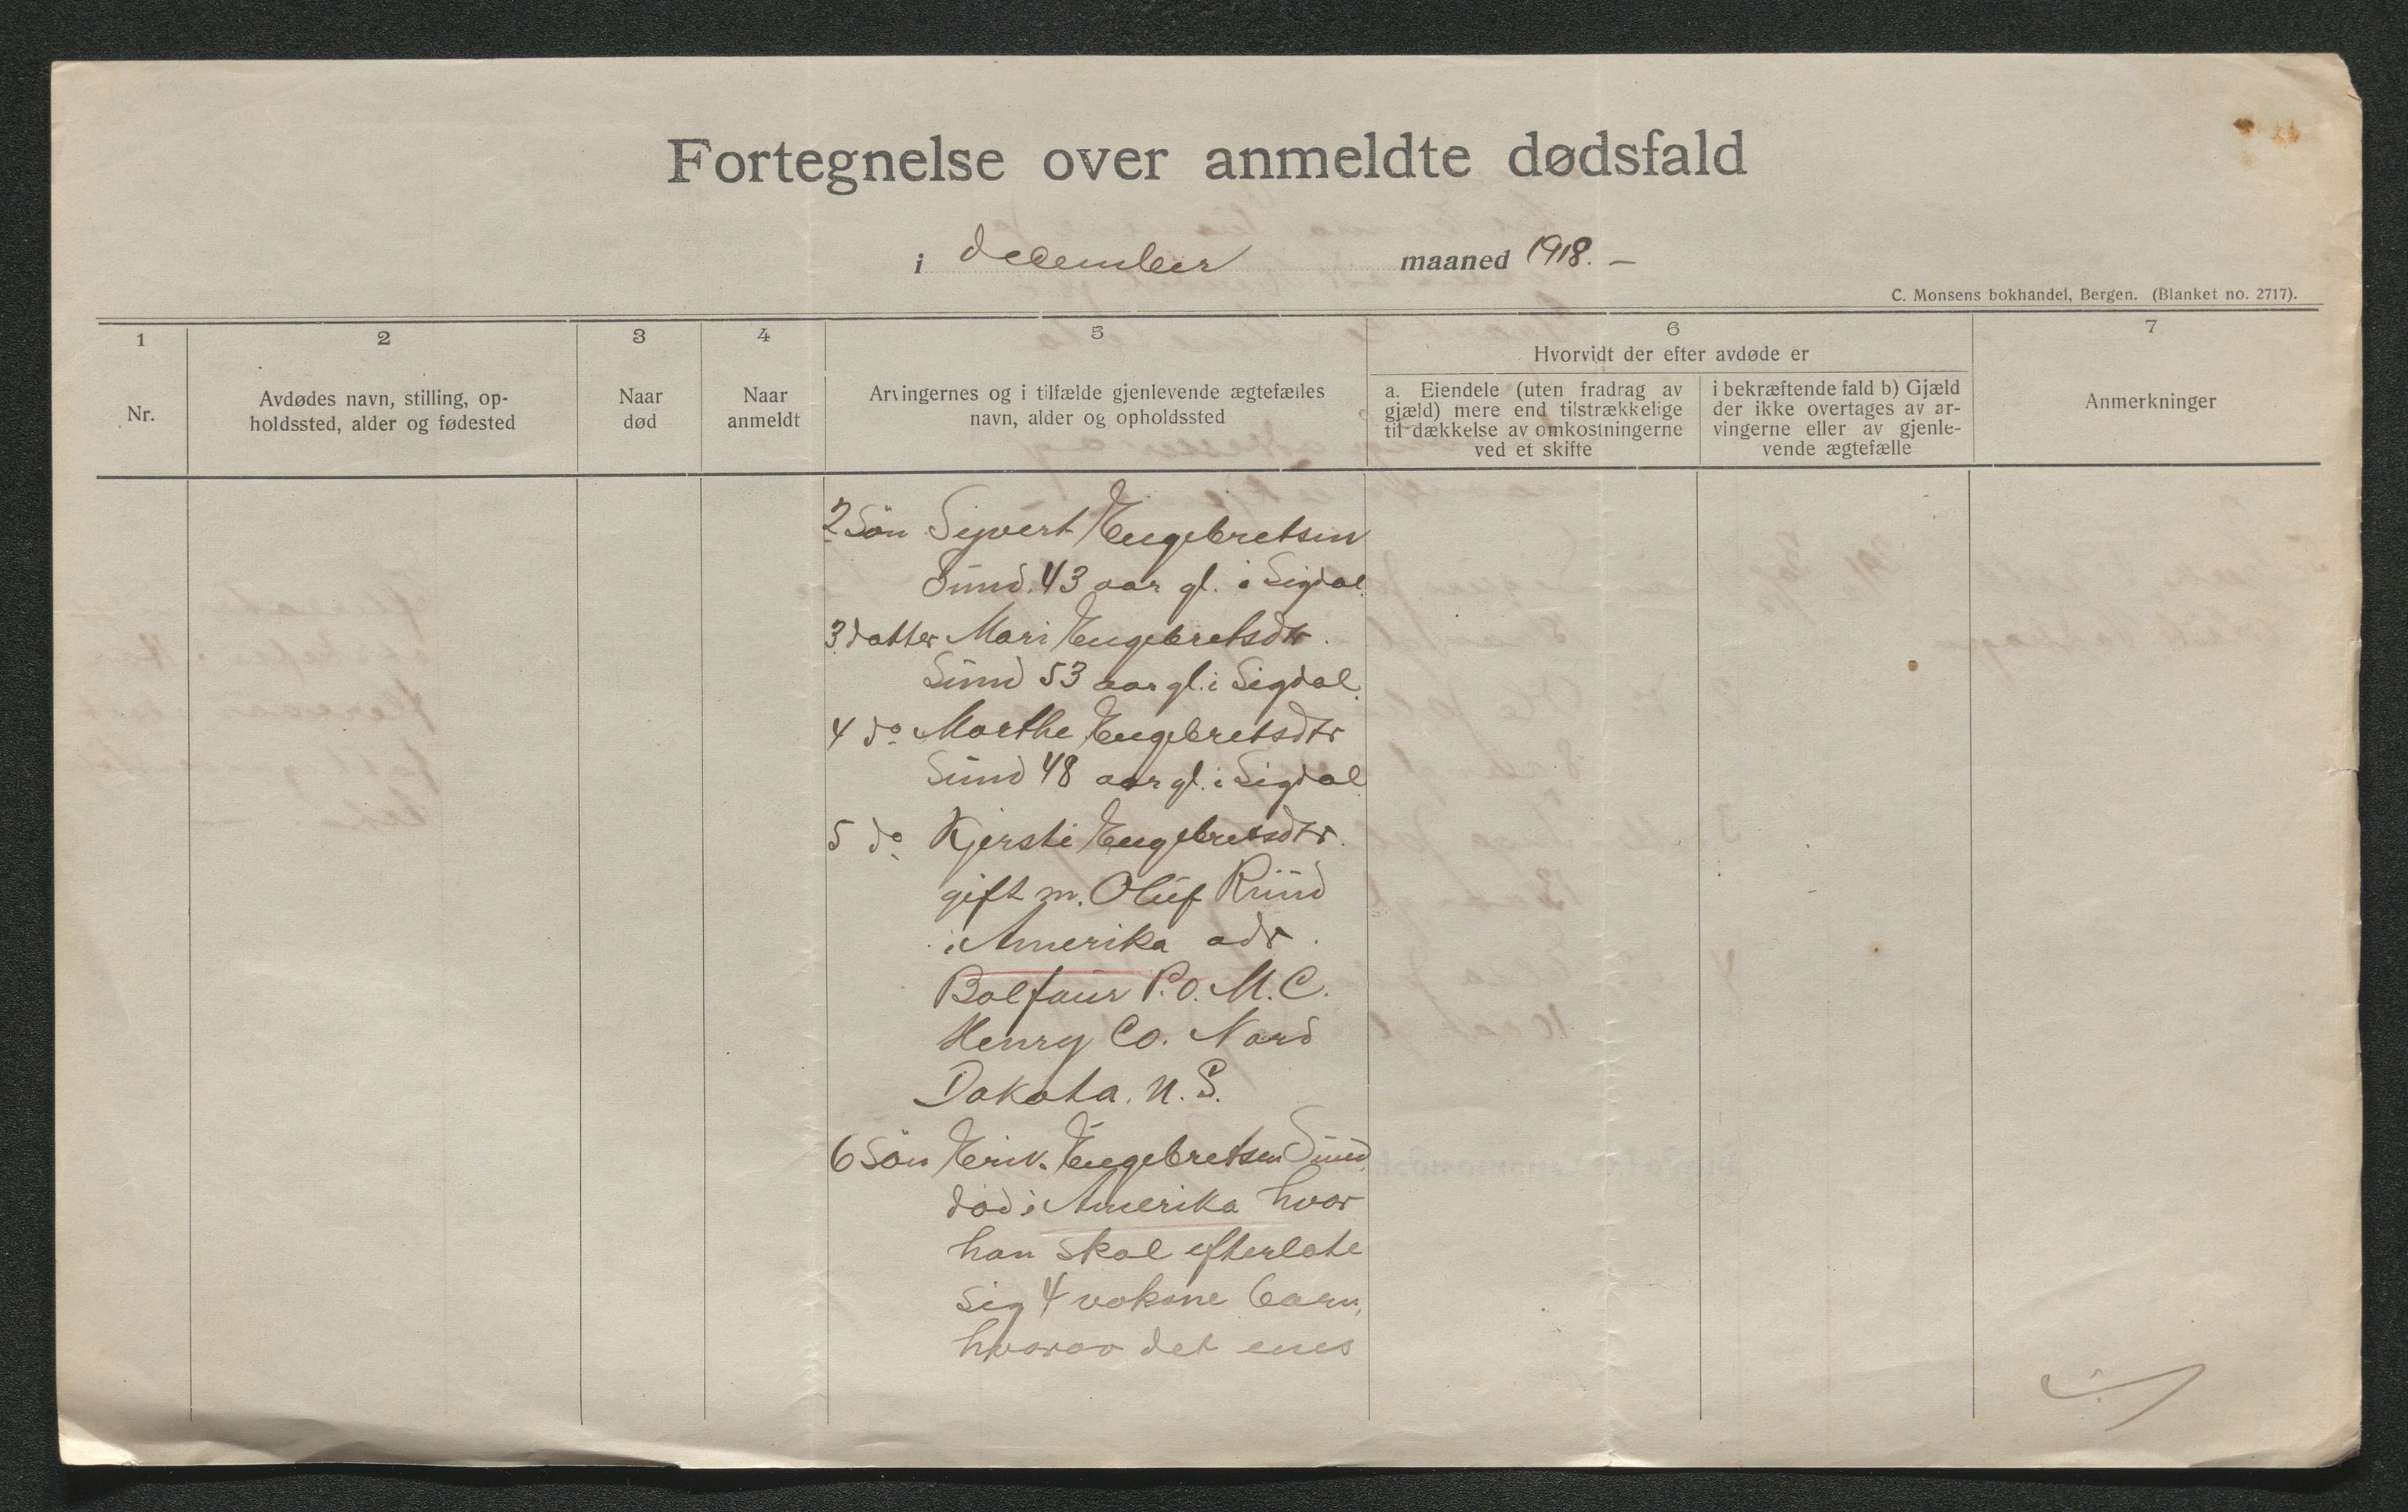 Fortegnelse over anmeldte dødsfald
i december maaned 1918. –
C. Monsens bokhandel, Bergen. (Blanket no. 2717).
1
2
3
4
5
6
7
Nr.
Avdødes navn, stilling, op-
holdssted, alder og fødested
Naar
død
Naar
anmeldt
Arvingernes og i tilfælde gjenlevende ægtefælles
navn, alder og opholdssted
Hvorvidt der efter avdøde er
a. Eiendele (uten fradrag av
gjæld) mere end tilstrækkelige
til dækkelse av omkostningerne
ved et skifte
i bekræftende fald b) Gjæld
der ikke overtages av ar-
vingerne eller av gjenle-
vende ægtefælle
Anmerkninger
2 Søn Syvert Engebretsen
Sund. 43 aar gl. i Sigdal.
3 datter Mari Engebretsdtr.
Sund 53 aar gl. i Sigdal.
4 do Marthe Engebretsdtr
Sund 48 aar gl. i Sigdal
5 do Kjersti Engebretsdtr.
gift m. Oluf Ruud
i Amerika adr.
Balfour P.O. M.C.
Henry Co. Nord
Dakota. N. S.
6 Søn Erik Engebretsen Sund
død i Amerika hvor
han skal efterlate
sig 4 voksne barn,
hvorav det enes